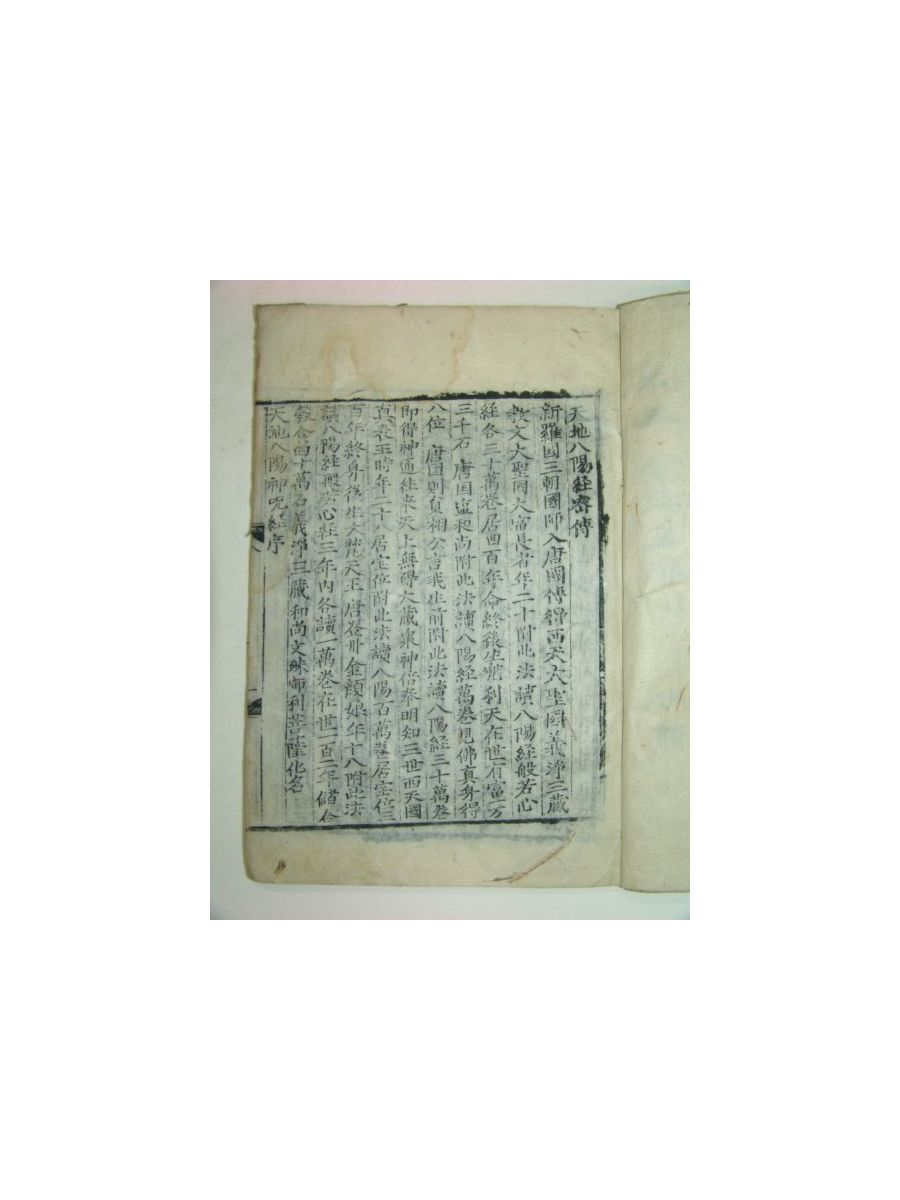 天地八陽経密傳
新羅國三朝國師入唐國傳得西天大聖國義淨三藏
教文大聖國大富長者年二十附此法讀八陽経般若心
経各三十萬卷居四百年命終後生忉利天在世有富一万
三千石 唐国塩和尚附此法讀八陽経萬卷見佛真身得
八位 唐国則貟相公言我生前附此法讀八陽経三十萬卷
即得神通往来天上無碍大蔵衆神倍奉明知三世西天國
真表王時年二十八居宝位附此法讀八陽百萬卷居宝位三
百年終身後生大梵天王 唐登州金顔娘年十八附此法
讀八陽経般若心経三年内各讀一萬卷在世一百二年儲金
穀合四十萬石義淨三藏和尚文殊師利菩薩化名
天地八陽神呪経序